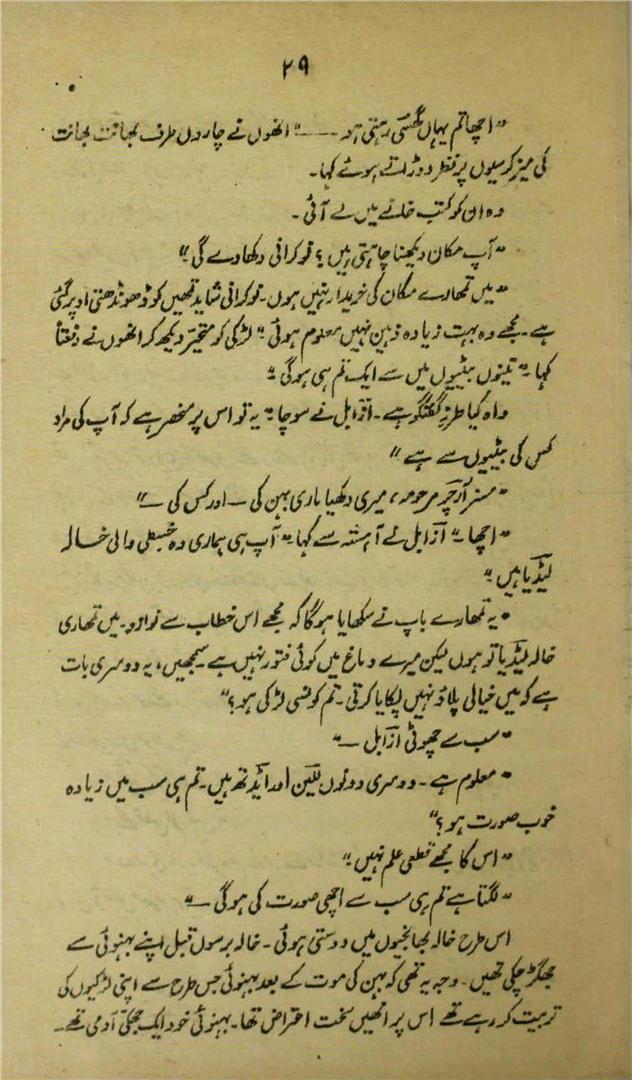 ۲۹
"اچھا تم یہاں گھسی رہتی ہو —" انھوں نے چاروں طرف بھانت بھانت
کی میز کرسیوں پر نظر دوڑاتے ہوئے کہا۔
وہ ان کو کتب خانے میں لے آئی۔
"آپ مکان دیکھنا چاہتی ہیں؟ نوکرانی دکھا دے گی"
"میں تمھارے مکان کی خریدار نہیں ہوں۔ نوکرانی شاید تمھیں کو ڈھونڈھتی اوپر گئی
ہے۔ مجھے وہ بہت زیادہ ذہین نہیں معلوم ہوئی" لڑکی کو متحیّر دیکھ کر انھوں نے دفعتاً
کہا۔ "تینوں بیٹیوں میں سے ایک تم ہی ہوگی"
واہ کیا طرزِ گفتگو ہے۔ ازابل نے سوچا۔ "یہ تو اس پر منحصر ہے کہ آپ کی مراد
کس کی بیٹیوں سے ہے"
"مسٹر آرچر مرحوم، میری دکھیا ماری بہن کی — اور کس کی —"
"اچھا۔" ازابل نے آہستہ سے کہا۔ "آپ ہی ہماری وہ خبطی والی خالہ
لیڈیا ہیں"
"یہ تمھارے باپ نے سکھایا ہوگا کہ مجھے اس خطاب سے نوازو۔ میں تمھاری
خالہ لیڈیا تو ہوں لیکن میرے دماغ میں کوئی فتور نہیں ہے۔ سمجھیں، یہ دوسری بات
ہے کہ میں خیالی پلاؤ نہیں پکایا کرتی۔ تم کونسی لڑکی ہو؟"
"سب سے چھوٹی ازابل —"
"معلوم ہے۔ دوسری دونوں للین اور ایڈتھ ہیں۔ تم ہی سب میں زیادہ
خوب صورت ہو؟"
"اس کا مجھے قطعی علم نہیں"
"لگتا ہے تم ہی سب سے اچھی صورت کی ہوگی —"
اس طرح خالہ بھانجیوں میں دوستی ہوئی۔ خالہ برسوں قبل اپنے بہنوئی سے
جھگڑ چکی تھیں۔ وجہ یہ تھی کہ بہن کی موت کے بعد بہنوئی جس طرح سے اپنی لڑکیوں کی
تربیت کر رہے تھے اس پر انھیں سخت اعتراض تھا۔ بہنوئی خود ایک جھکّی آدمی تھے۔